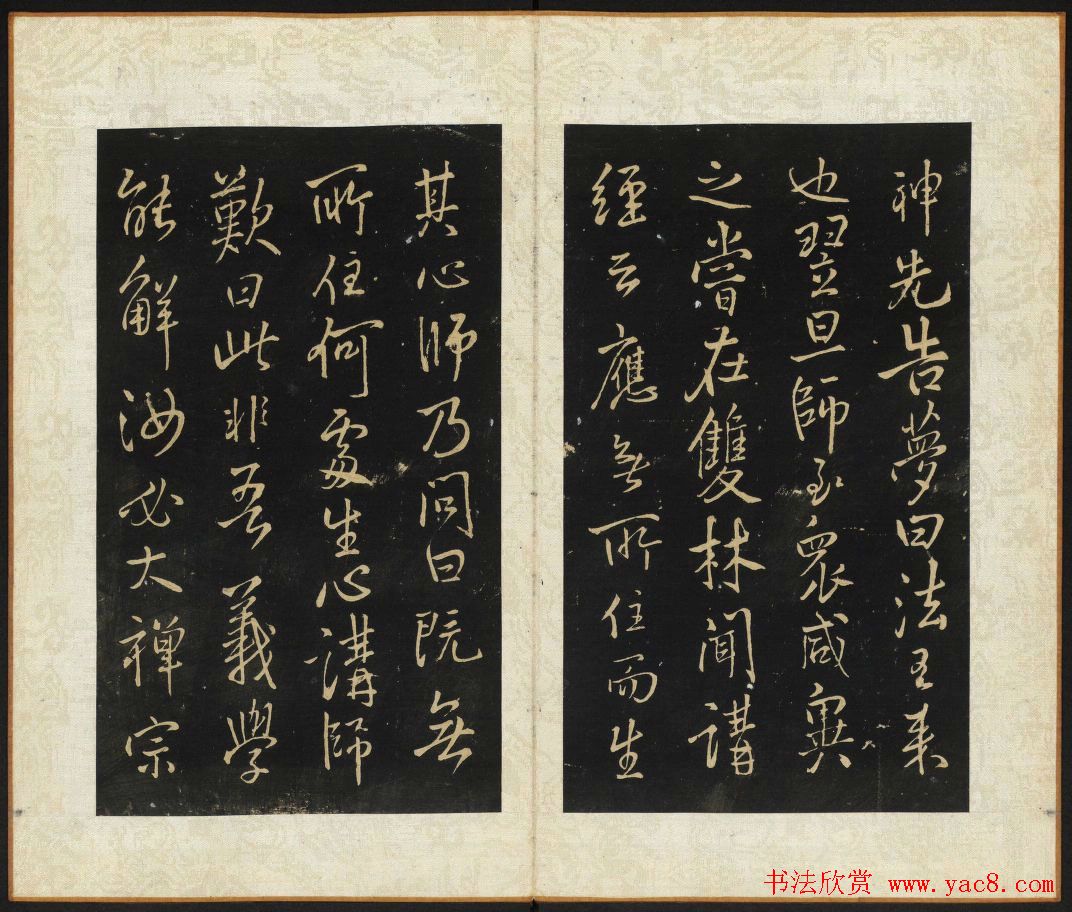 神先告夢曰法王来
也翌旦師至衆咸異
之嘗在雙林聞講
經云應無所住而生
其心師乃問曰既無
所住何處生心講師
歎曰此非吾義學
能解汝必大禪宗
书法欣赏 www.yac8.com